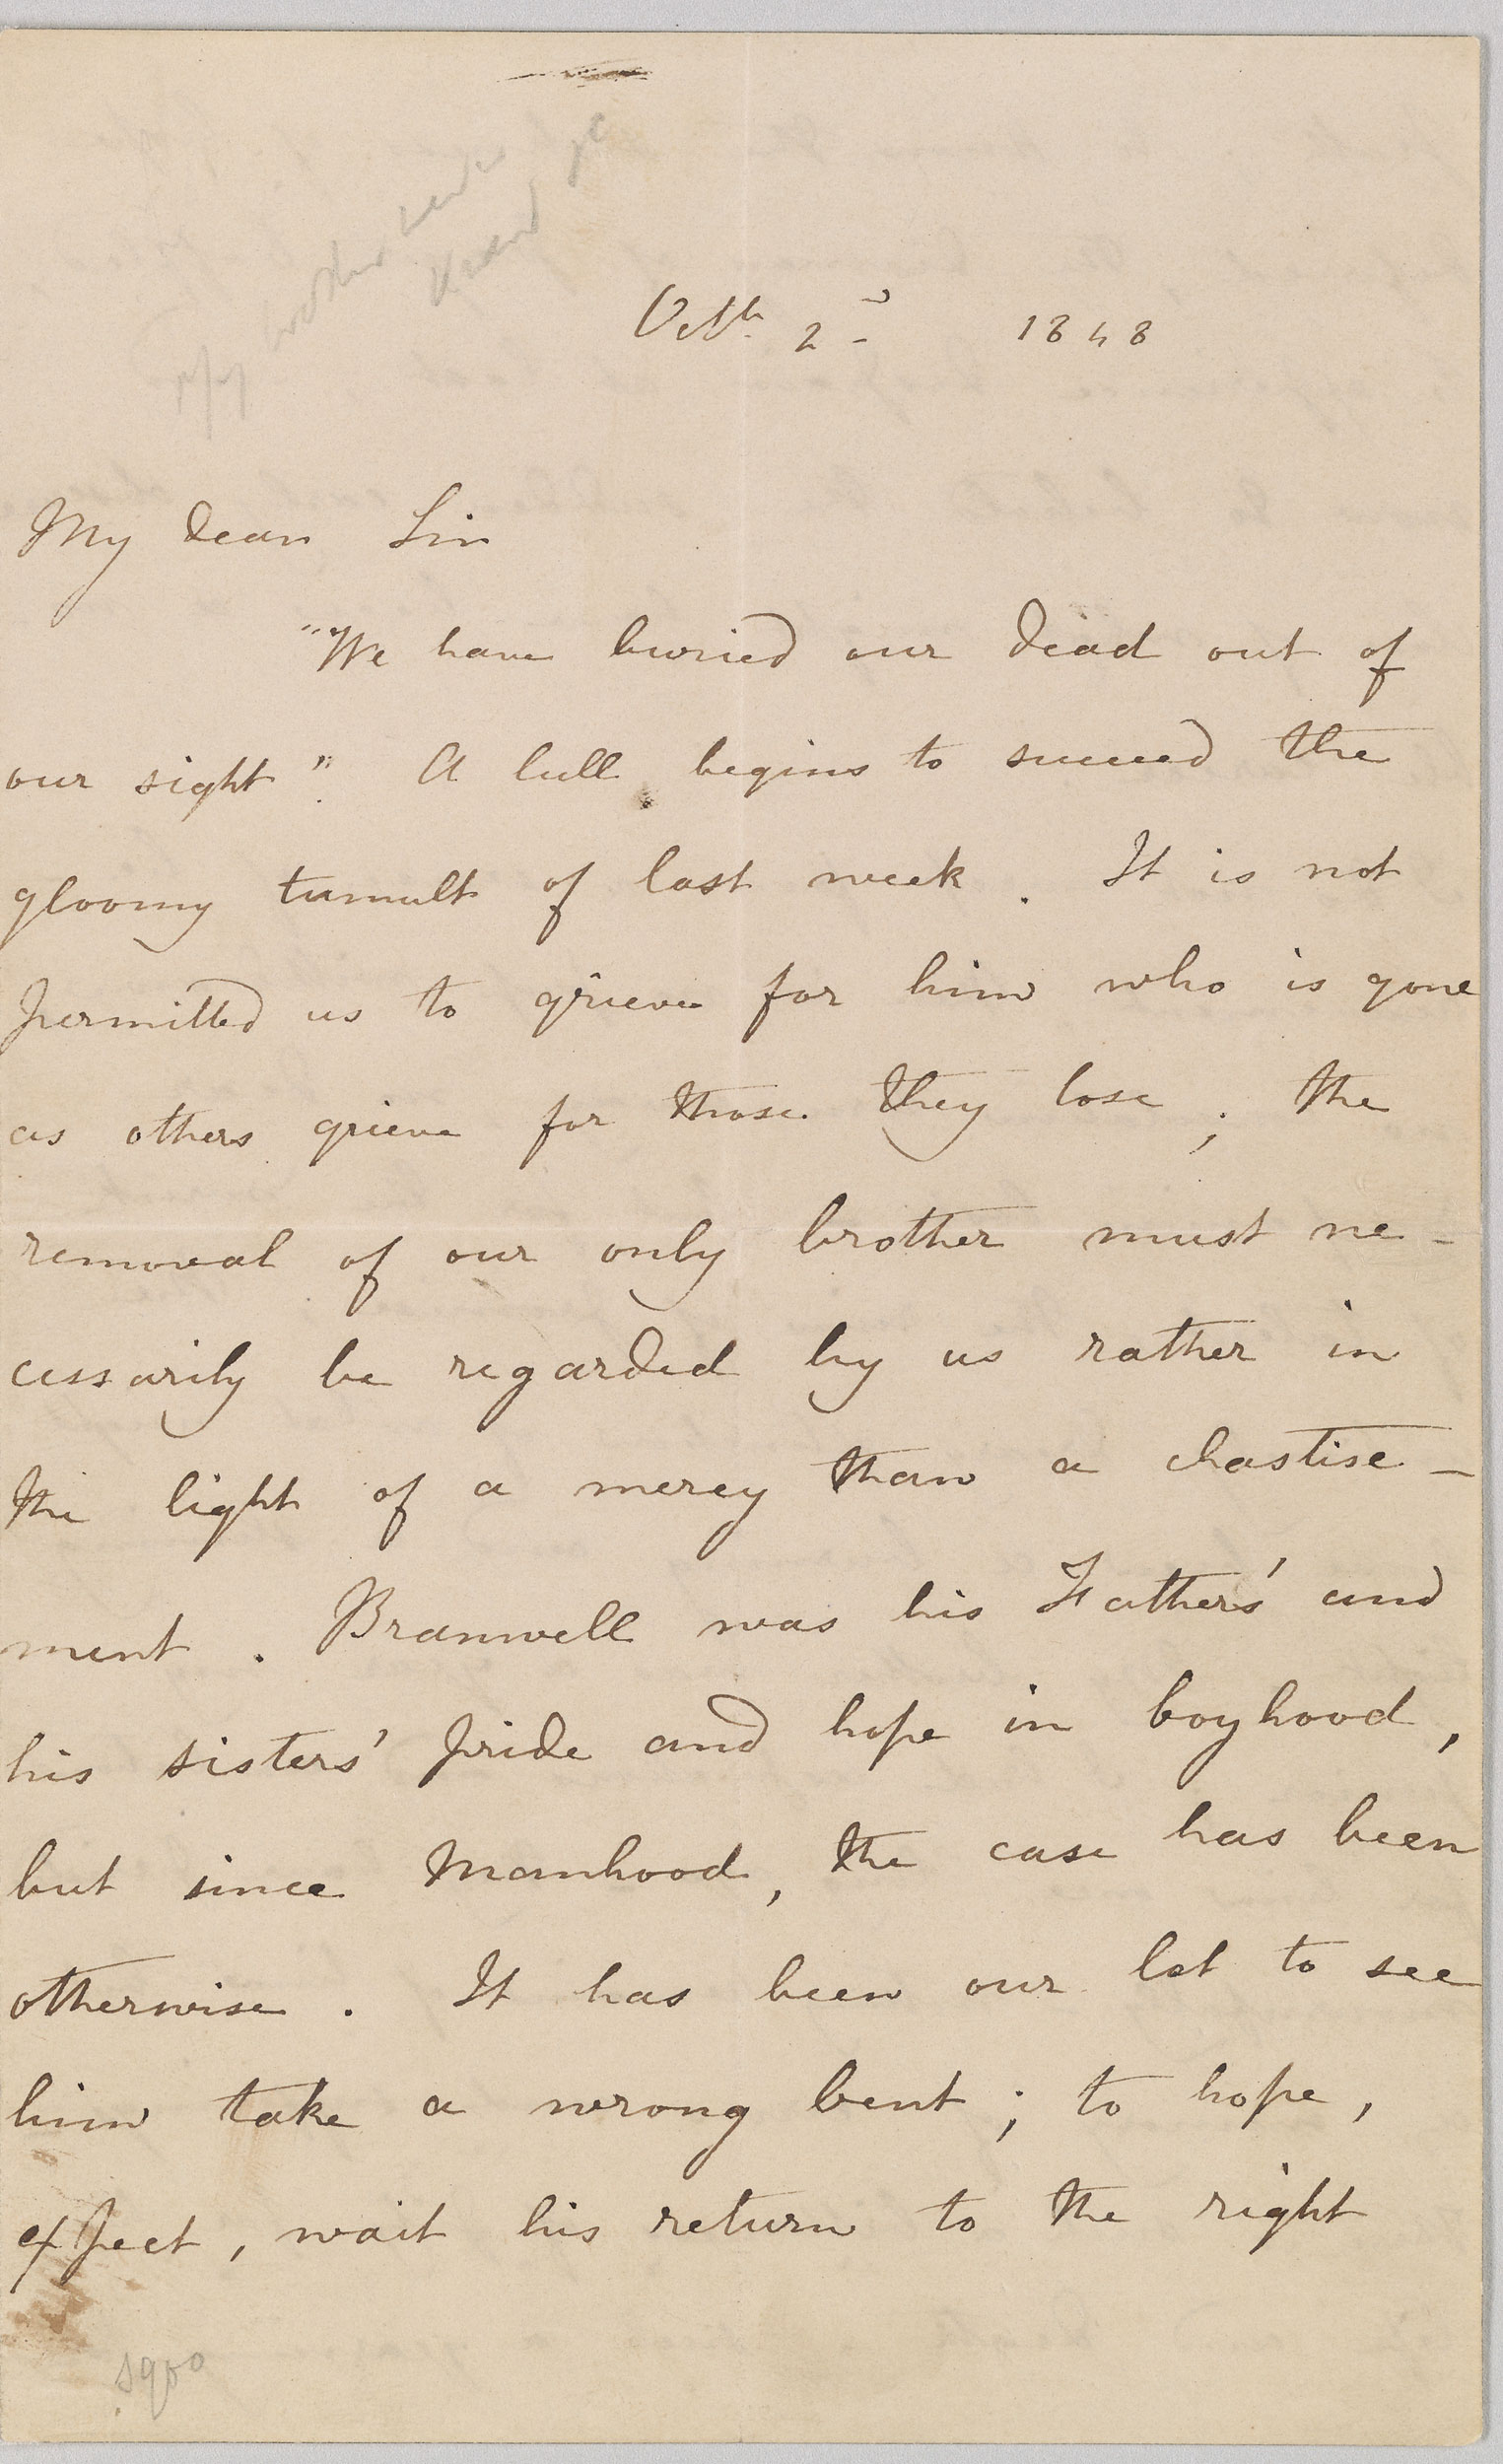 Octbr. 2nd 1848
My dear Sir
"We have buried our dead out of
our sight". A lull begins to succeed the
gloomy tumult of last week. It is not
permitted us to grieve for him who is gone
as others grieve for those they lose; the
removal of our only brother must ne-
cessarily be regarded by us rather in
the light of a mercy than a chastise-
ment. Branwell was his Father's and
his sisters' pride and hope in boyhood,
but since Manhood, the case has been
otherwise. It has been our lot to see
him take a wrong bent; to hope,
expect, wait his return to the right